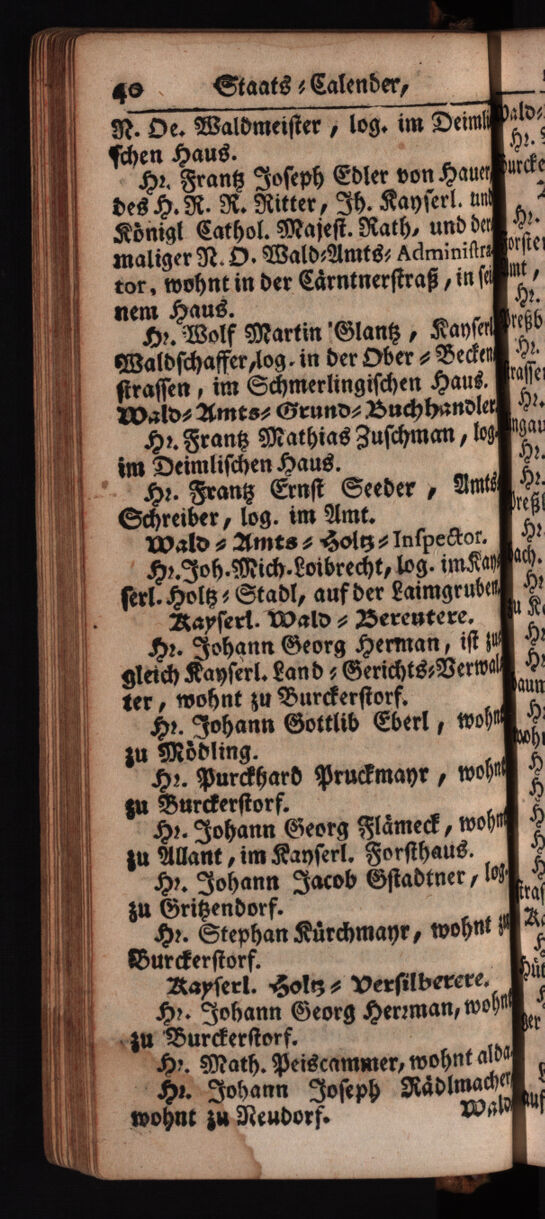 40 Staats⸗Calender,
N. Oe. Waldmeister, log. im Deimli
schen Haus.
Hr. Frantz Joseph Edler von Hauer,
des H. R. R. Ritter, Jh. Kayserl. und
Königl Cathol. Majest. Rath, und der
maliger N. O. Wald⸗Amts⸗ Administra
tor, wohnt in der Cärntnerstraß, in sei
nem Haus.
Hr. Wolf Martin Glantz, Kayserl
Waldschaffer, log. in der Ober⸗Becken
strassen, im Schmerlingischen Haus.
Wald⸗Amts⸗Grund⸗Buchhandler
Hr. Frantz Mathias Zuschman, log.
im Deimlischen Haus.
Hr. Frantz Ernst Seeder, Amts
Schreiber, log. im Amt.
Wald⸗Amts⸗Holtz⸗Inspector.
Hr. Joh. Mich. Loibrecht, log. im Kay
serl. Holtz⸗Stadl, auf der Laimgruben
Kayserl. Wald⸗Bereutere.
Hr. Johann Georg Herman, ist zu
gleich Kayserl. Land⸗Gerichts⸗Verwal
ter, wohnt zu Burckerstorf.
Hr. Johann Gottlib Eberl, wohnt
zu Mödling.
Hr. Purckhard Pruckmayr, wohnt
zu Burckerstorf.
Hr. Johann Georg Flämeck, wohnt
zu Allant, im Kayserl. Forsthaus.
Hr. Johann Jacob Gstadtner, log.
zu Gritzendorf.
Hr. Stephan Kürchmayr, wohnt zu
Burckerstorf.
Kayserl. Holtz⸗Versilberere.
Hr. Johann Georg Herrman, wohnt
zu Burckerstorf.
Hr. Math. Peiscammer, wohnt alda
Hr. Johann Joseph Rädlmacher
wohnt zu Neudorf.
Wald